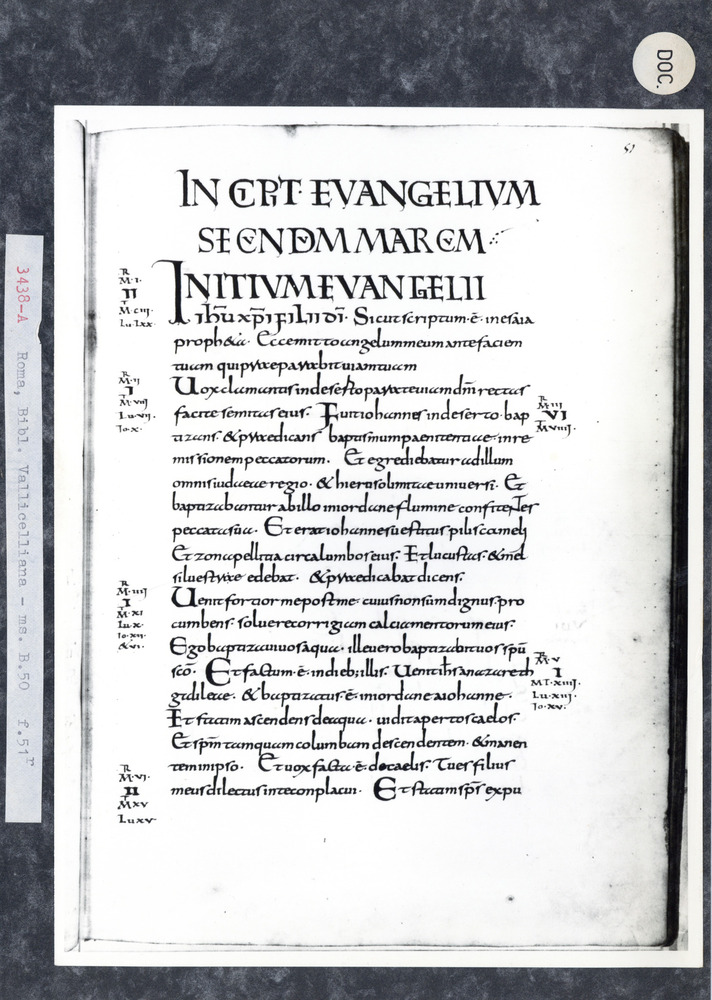 DOC.
3438-A Roma, Bibl. Vallicelliana - ms. B.50 f.51r
51
IN CIPIT· EVANGELIVM
SECNDM MARCM
INITIVM EVANGELII
ihu xpi filii di· Sicut scriptum· ē· in esaia
proph&a· Ecce mitto angelum meum ante faciem
tuam qui preparabit uiam tuam
R
M·I·
II
M·CIII
Lu·LXX·
Uox clamantis in deserto parate uiam dni rectas
facite semitas eius· Fuit iohannes in deserto· bap
tizans· & predicans baptismum paenitentiae· in re
missionem peccatorum· Et egrediebatur ad illum
omnis iudaeae regio· & hierosolimitae uniuersi· Et
baptizabantur ab illo in iordane flumine confitentes
peccata sua· Et erat iohannes uestitus pilis cameli
Et zona pellitia circa lumbos eius· Et lucustas· & mel
siluestrae edebat· & praedicabat dicens·
R
M·II
I
M·VIII
Lu·VII·
Io·X·
R
M·III
VI
M·VIIII·
Uenit fortior me post me· cuius non sum dignus· pro
cumbens· soluere corrigiam calciamentorum eius·
Ego baptizaui uos aqua· ille uero baptizabit uos spu
sco· Et factum· ē· in dieb· illis· Uenit ihs a nazareth
galileae· & baptizatus· ē· in iordane a iohanne·
Et statim ascendens de aqua· uidit apertos caelos·
Et spm tamquam columbam descendentem· & manen
tem in ipso· Et uox facta· ē· de caelis· Tu es filius
meus dilectus in te conplacui· Et statim sps expu
R
M·IIII
I
M·XI
Lu·X·
Io·XII·
&VI·
R
M·V
I
MT·XIIII·
Lu·XIII·
Io·XV·
R
M·VI·
II
M·XV
Lu·XV·